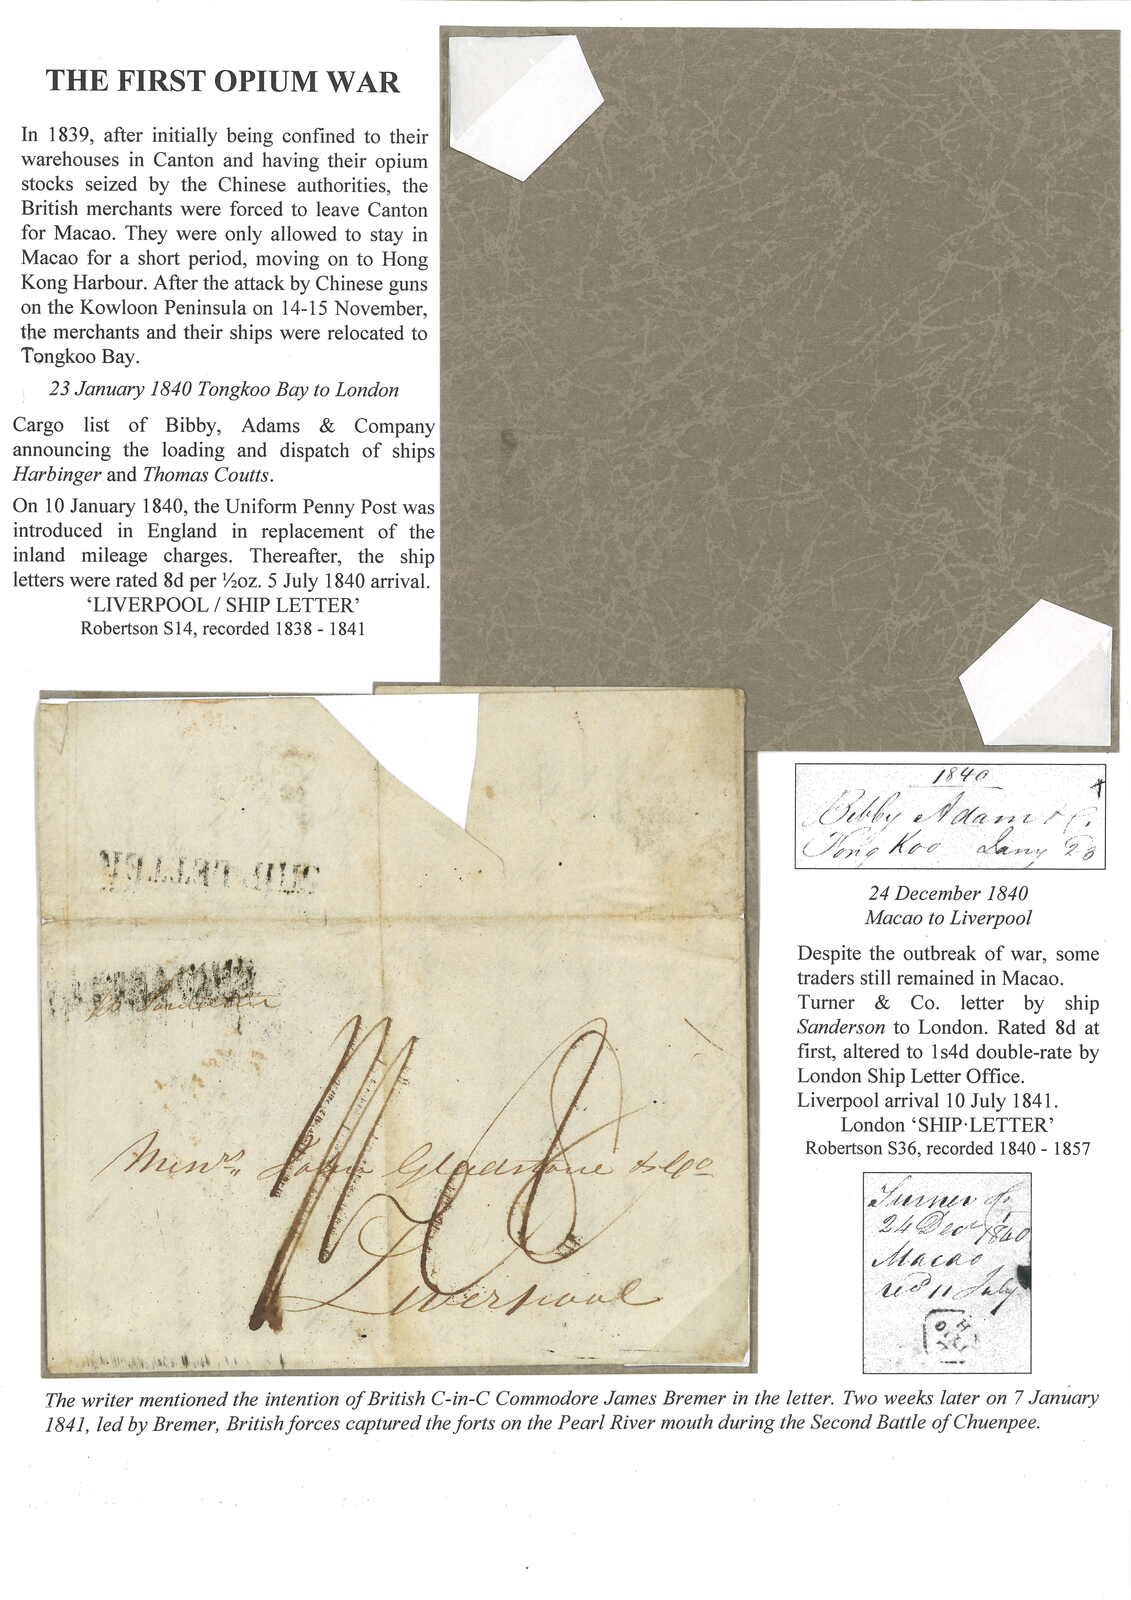 THE FIRST OPIUM WAR
In 1839, after initially being confined to their
warehouses in Canton and having their opium
stocks seized by the Chinese authorities, the
British merchants were forced to leave Canton
for Macao. They were only allowed to stay in
Macao for a short period, moving on to Hong
Kong Harbour. After the attack by Chinese guns
on the Kowloon Peninsula on 14-15 November,
the merchants and their ships were relocated to
Tongkoo Bay.
23 January 1840 Tongkoo Bay to London
Cargo list of Bibby, Adams & Company
announcing the loading and dispatch of ships
Harbinger and Thomas Coutts.
On 10 January 1840, the Uniform Penny Post was
introduced in England in replacement of the
inland mileage charges. Thereafter, the ship
letters were rated 8d per ½oz. 5 July 1840 arrival.
'LIVERPOOL / SHIP LETTER'
Robertson S14, recorded 1838 - 1841
1840
Bibby Adam & C.
Tong Koo Jany 23
24 December 1840
Macao to Liverpool
Despite the outbreak of war, some
traders still remained in Macao.
Turner & Co. letter by ship
Sanderson to London. Rated 8d at
first, altered to 1s4d double-rate by
London Ship Letter Office.
Liverpool arrival 10 July 1841.
London 'SHIP·LETTER'
Robertson S36, recorded 1840 - 1857
Turner Co
24 Decr 1840
Macao
recd 11 July
Messrs John Gladstone & Co
Liverpool
The writer mentioned the intention of British C-in-C Commodore James Bremer in the letter. Two weeks later on 7 January
1841, led by Bremer, British forces captured the forts on the Pearl River mouth during the Second Battle of Chuenpee.